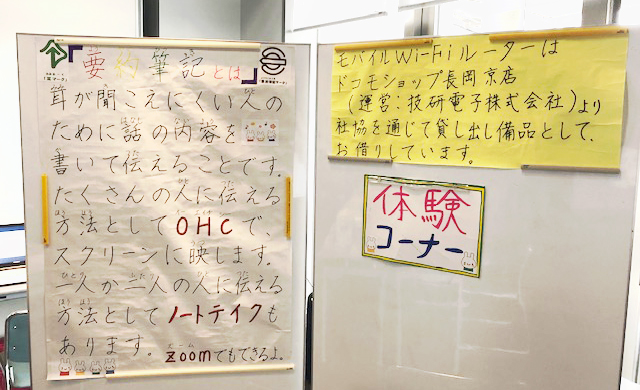 「要約筆記とは」
耳が聞こえにくい人の
ために話の内容を
書いて伝えることです。
たくさんの人に伝える
方法としてOHCで、
スクリーンに映します。
一人か二人の人に伝える
方法としてノートテイクも
あります。zoomでもできるよ。
モバイルWi-Fiルーターは
ドコモショップ長岡京店
(運営：技研電子株式会社)より
社協を通じて貸し出し備品として、
お借りしています。
体験
コーナー